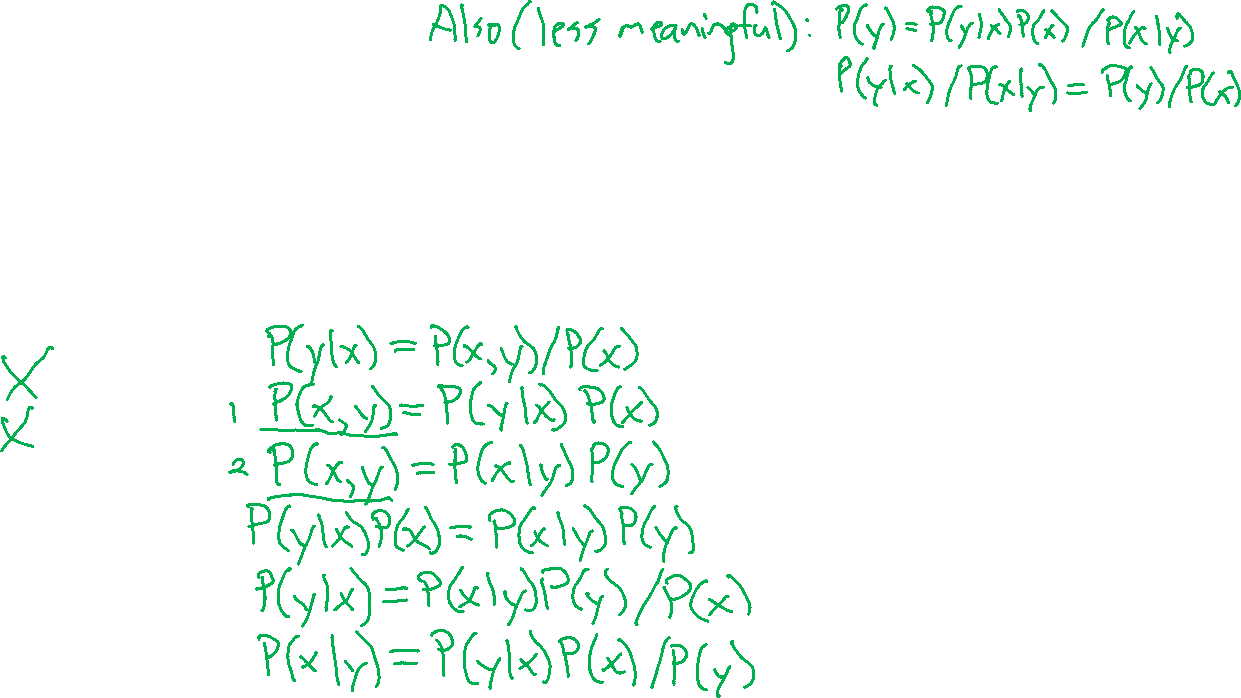 Also (less meaningful): P(y) = P(y|x)P(x) / P(x|y)
P(y|x) / P(x|y) = P(y)/P(x)
P(y|x) = P(x,y)/P(x)
X
1 P(x,y) = P(y|x) P(x)
x
2 P(x,y) = P(x|y) P(y)
P(y|x)P(x) = P(x|y) P(y)
P(y|x) = P(x|y)P(y) / P(x)
P(x|y) = P(y|x) P(x) / P(y)